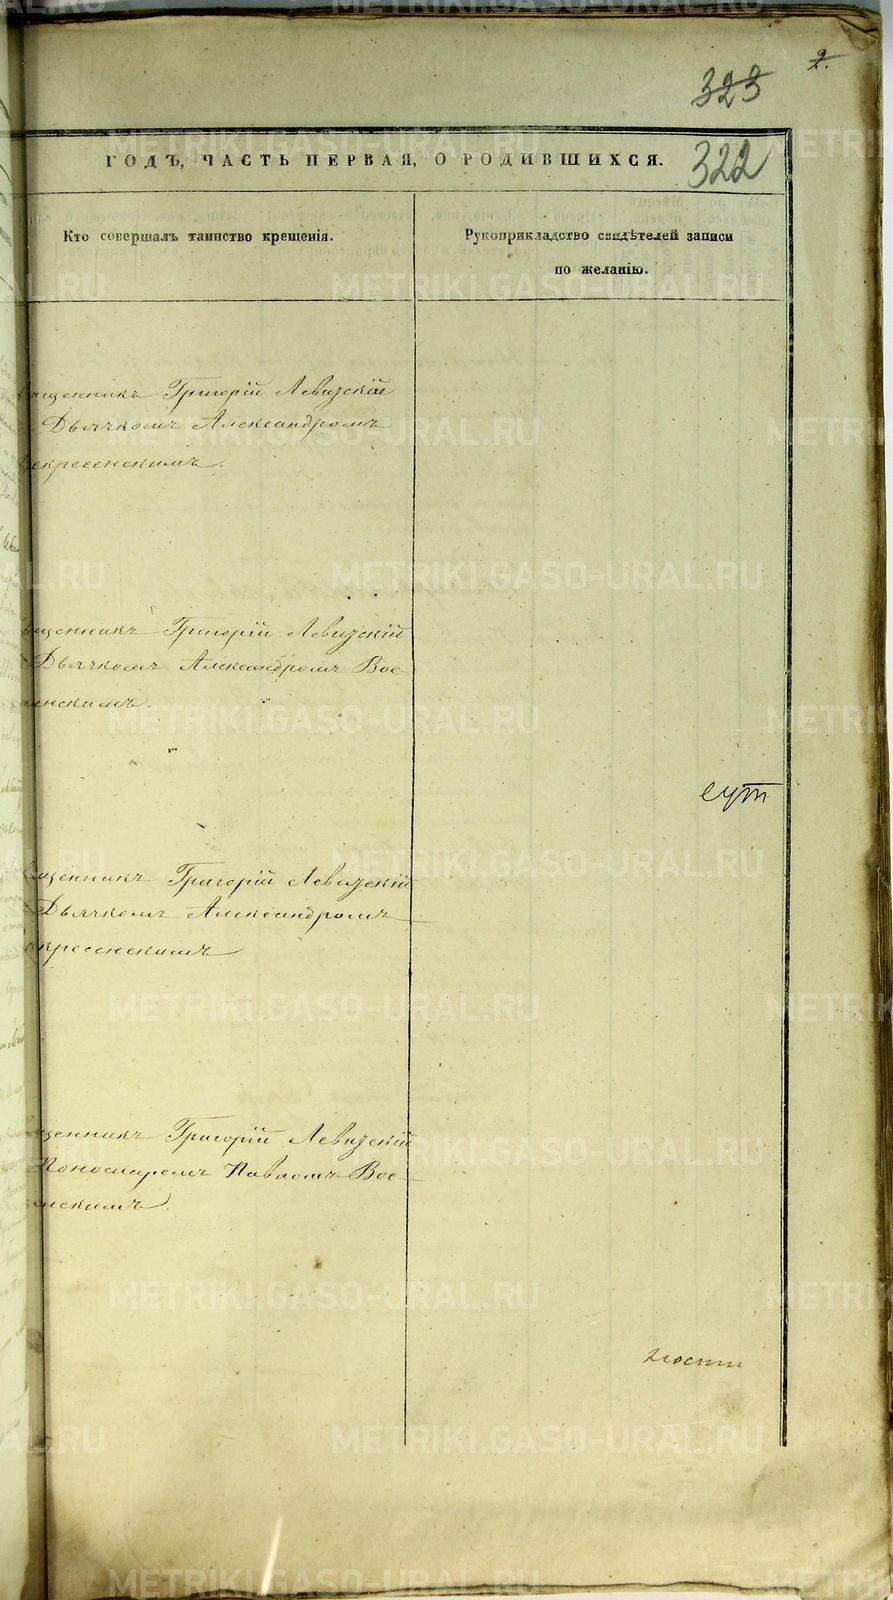 2.
323
322
ГОДЪ, ЧАСТЬ ПЕРВАЯ, О РОДИВШИХСЯ.
Кто совершалъ таинство крещенія.
Рукоприкладство свидѣтелей записи
по желанію.
щенникъ Григорій Левизскій
Дьячкомъ Александромъ
скресенскимъ.
щенникъ Григорій Левизскій
Дьячкомъ Александромъ Вос
сенскимъ.
щенникъ Григорій Левизскій
Дьячкомъ Александромъ
кресенскимъ
щенникъ Григорій Левизскій
Пономаремъ Павломъ Вос
енскимъ.
METRIKI.GASO-URAL.RU